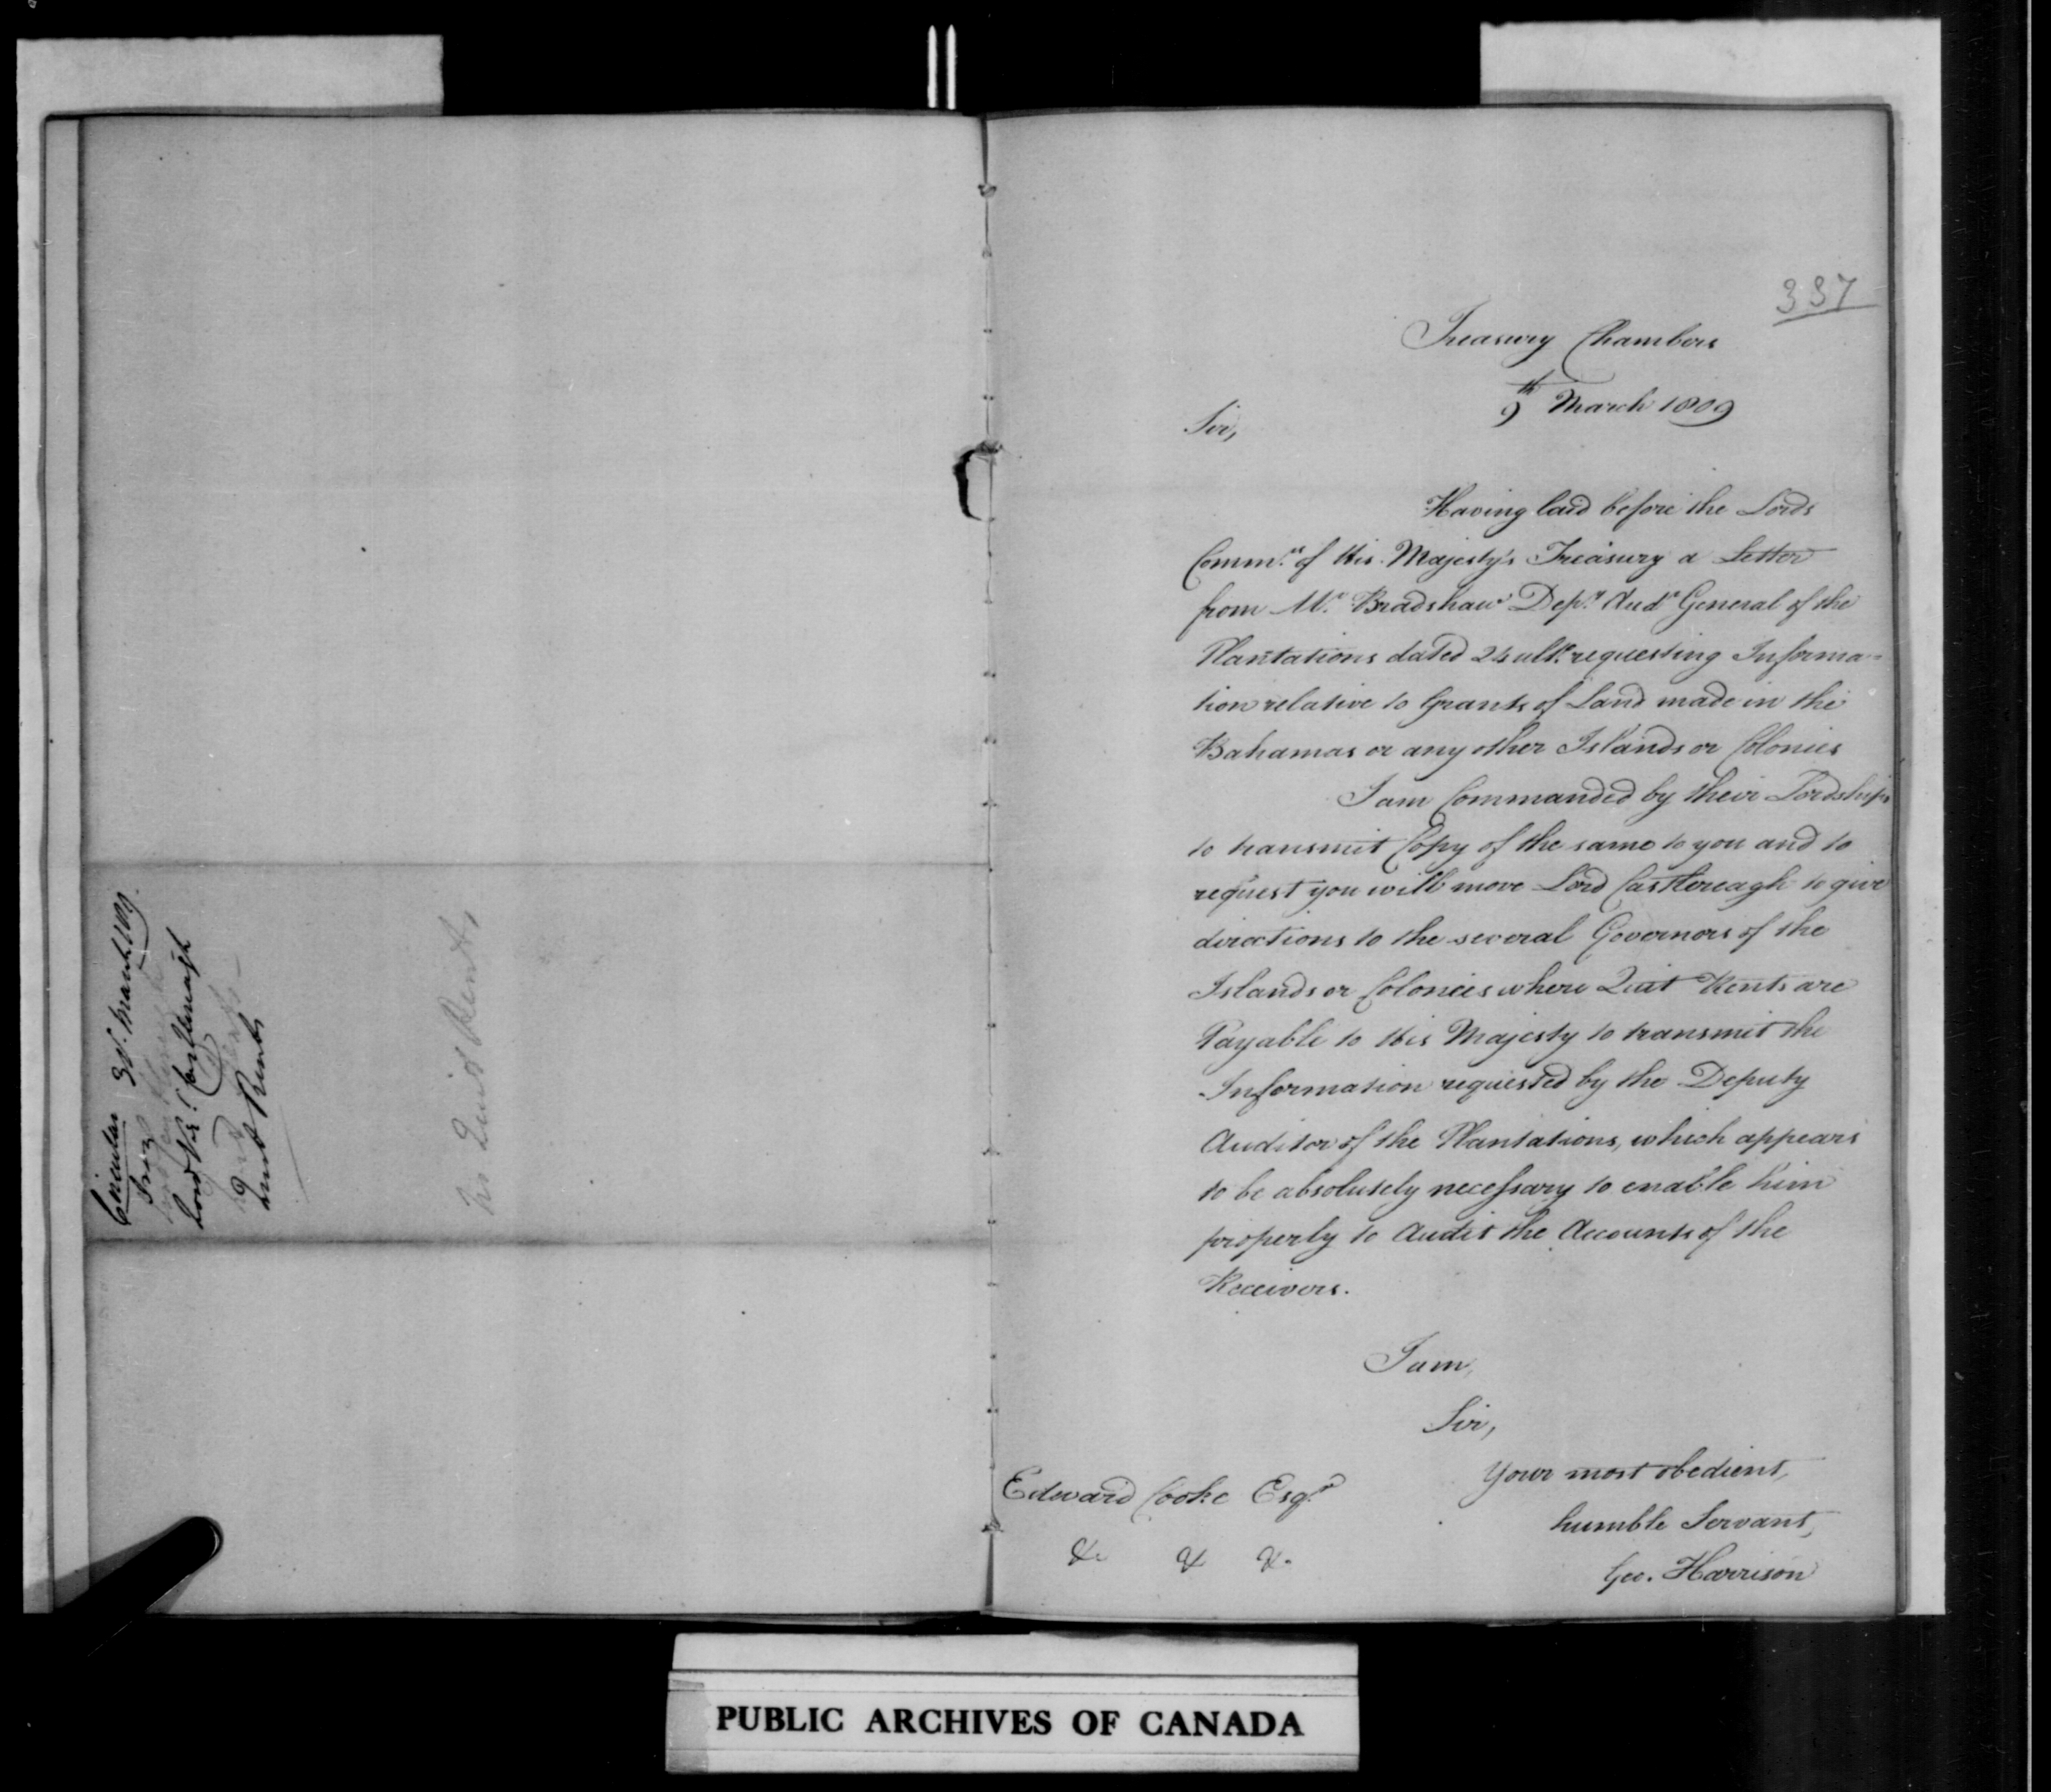 Circular 30th March 1809.
From
Lord Vist. Castlereagh
Quit Rents
Quit Rents
337
Treasury Chambers
9th March 1809
Sir,
Having laid before the Lords
Commrs. of His Majesty's Treasury a Letter
from Mr. Bradshaw Depy. Audr. General of the
Plantations dated 24 ulto. requesting Informa=
tion relative to Grants of Land made in the
Bahamas or any other Islands or Colonies
I am Commanded by their Lordships
to transmit Copy of the same to you and to
request you will move Lord Castlereagh to give
directions to the several Governors of the
Islands or Colonies where Quit Rents are
Payable to His Majesty to transmit the
Information requested by the Deputy
Auditor of the Plantations, which appears
to be absolutely necessary to enable him
properly to Audit the Accounts of the
Receivers.
I am,
Sir,
Your most obedient,
humble Servant,
Geo. Harrison
Edward Cooke Esqr.
&c & &c.
PUBLIC ARCHIVES OF CANADA